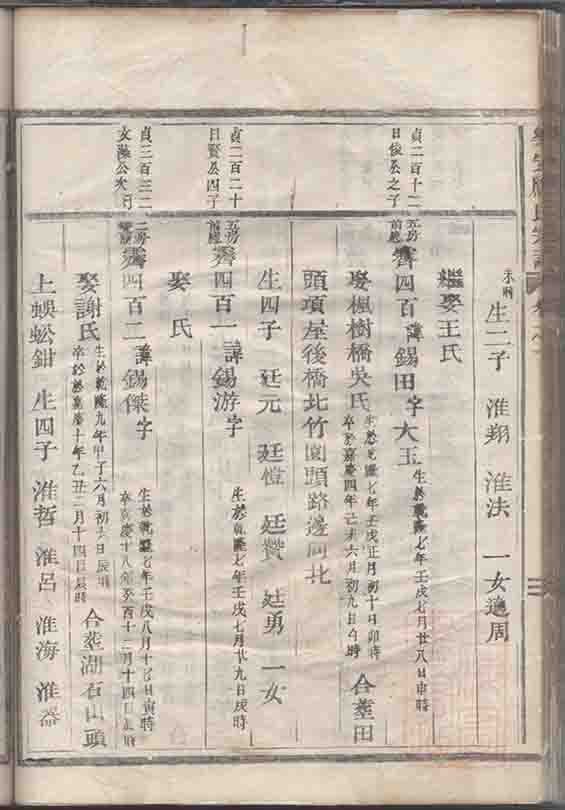 生二子 淮翔 淮法 一女適周
繼娶王氏
貞二百十二
日俊公之子
五房
前總
霽四百 諱錫田字大玉 生於乾隆七年壬戌七月廿八日申時
娶楓樹橋吳氏 生於乾隆七年壬戌正月初十日卯時
卒於嘉慶四年己未六月初九日午時
合塟田
頭項屋後橋北竹園頭路邊向北
生四子 廷元 廷愷 廷贊 廷勇 一女
貞二百二十
日賢公四子
五房
前總
霽四百一 諱錫游字 生於乾隆七年壬戌七月廿九日戌時
娶 氏
貞三百三二
二房
霽四百二 諱錫傑字 生於乾隆七年壬戌八月十日寅時
卒嘉慶十八年癸酉十二月十四日時
娶謝氏 生於乾隆九年甲子六月初六日辰時
卒於嘉慶十年乙丑二月十四日辰時
合塟湖石山頭
上蜈蚣鉗 生四子 淮哲 淮呂 淮海 淮器